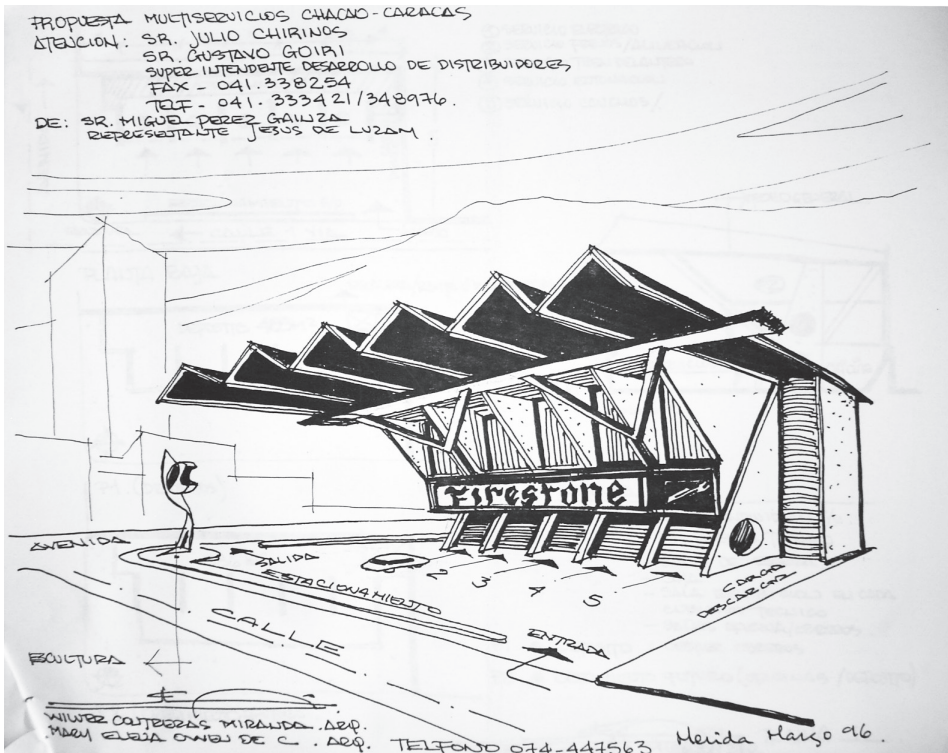 PROPUESTA MULTISERVICIOS CHACAO-CARACAS
ATENCION: SR. JULIO CHIRINOS
SR. GUSTAVO GOIRI
SUPER INTENDENTE DESARROLLO DE DISTRIBUIDORES
FAX - 041.338254
TELF - 041. 333421/348976.
DE: SR. MIGUEL PEREZ GAINZA
REPRESENTANTE JESUS DE LUZAM.
Firestone
AVENIDA
SALIDA
ESTACIONAMIENTO
2 3 4 5
CARGA
DESCARGA
CALLE
ENTRADA
ESCULTURA
WILVER CONTRERAS MIRANDA. ARQ.
MARY ELENA OWEN DE C. ARQ. TELFONO 074-447563 Merida Marzo 96.